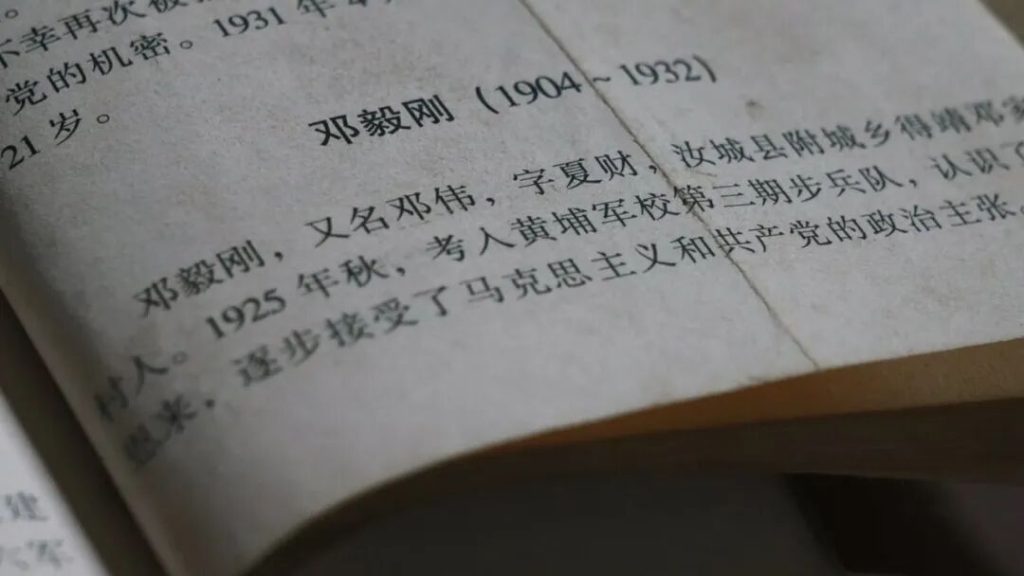 不幸再次被
党的机密。1931 年 4
21 岁。
邓毅刚（1904～1932）
邓毅刚，又名邓伟，字夏财，汝城县附城乡得靖邓家
村人。1925 年秋，考入黄埔军校第三期步兵队，认识了
恩来，逐步接受了马克思主义和共产党的政治主张。
建
六军